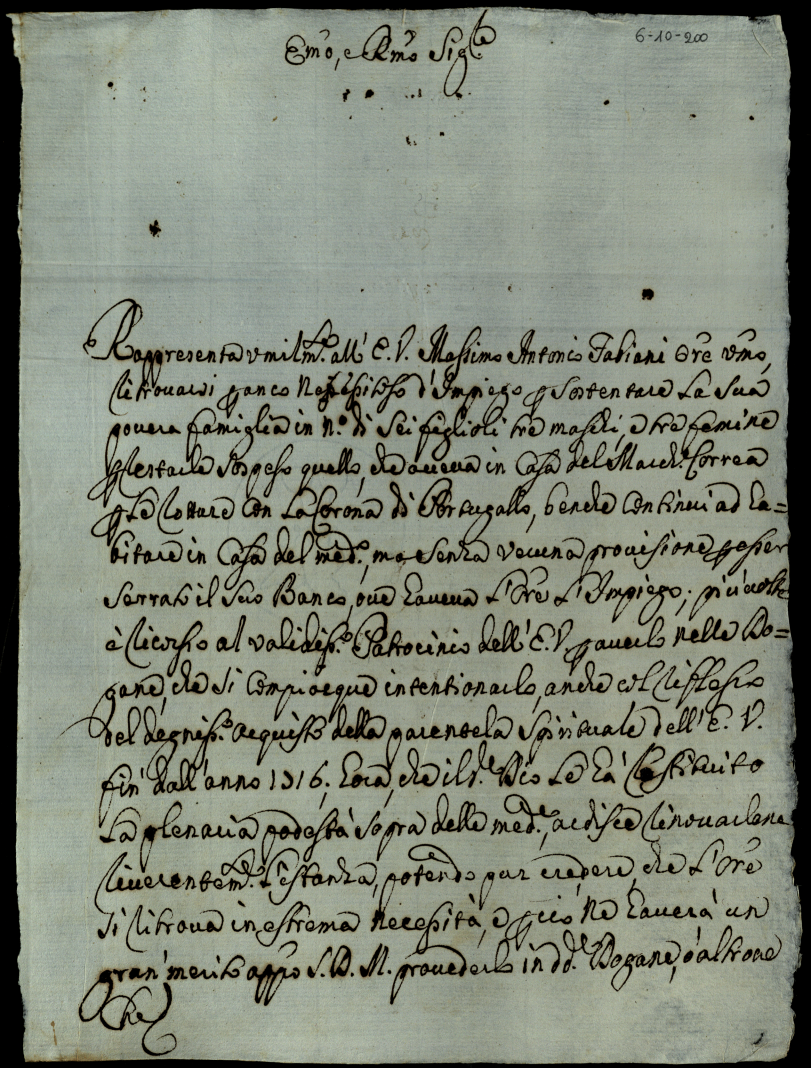 6-10-200
Emo, e Rmo Sig.re
Rappresenta vmilm.e all' E. V. Massimo Antonio Fabiani Ore vmo,
ritrouarsi p anco Necessitoso d'Impiego p sostentare la sua
pouera famiglia in n.o di sei figlioli tre maschi, e tre femine
p restarle sospeso quello, che aueua in Casa del March.e Correa
p le rotture con la Corona di Portugallo, benche continui ad ha=
bitare in Casa del med.o, ma senza veruna prouisione p esser
serrato il suo Banco, oue haueua l'Ore l'Impiego; più uolte
è ricorso al validiss.o Patrocinio dell' E. V. p auerlo nelle Do=
gane, che si compiacque intentionarlo, anche col riflesso
del degniss.o acquisto della parentela spirituale dell' E. V.
fin' dall' anno 1716; hora, che il S.e Dio le hà restituito
la plenaria podestà sopra delle med.e, ardisce rinouarlene
riuerentem.e l'istanza, potendo pur credere, che l'Ore
si ritroua in estrema necessità, e p ciò ne hauerà un
gran' merito appo S. D. M. prouederlo in d.e Dogane, ò altroue
Che